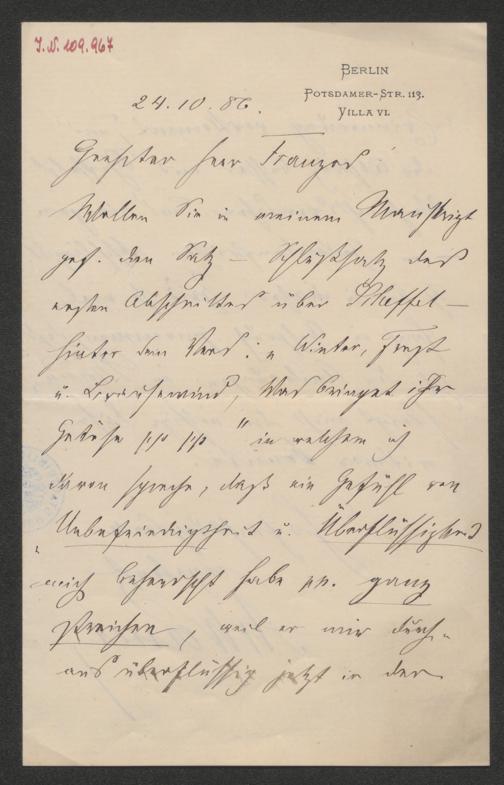 I.N. 109.967
BERLIN
POTSDAMER-STR. 113.
VILLA VI.
24.10.86.
Geehrter Herr Franzos
Wollen Sie in meinem Manuskript
gef. den Satz – Schlußsatz des
ersten Abschnittes über Scheffel –
hinter dem Vers: „Winter, Frost
u. Brausewind, Was bringet ihr
Getöse pp pp" in welchem ich
davon spreche, daß ein Gefühl von
Unbefriedigtheit u. Überflüssigkeit
mich beherrscht habe pp. ganz
streichen, weil er mir durch-
aus überflüssig jetzt in der